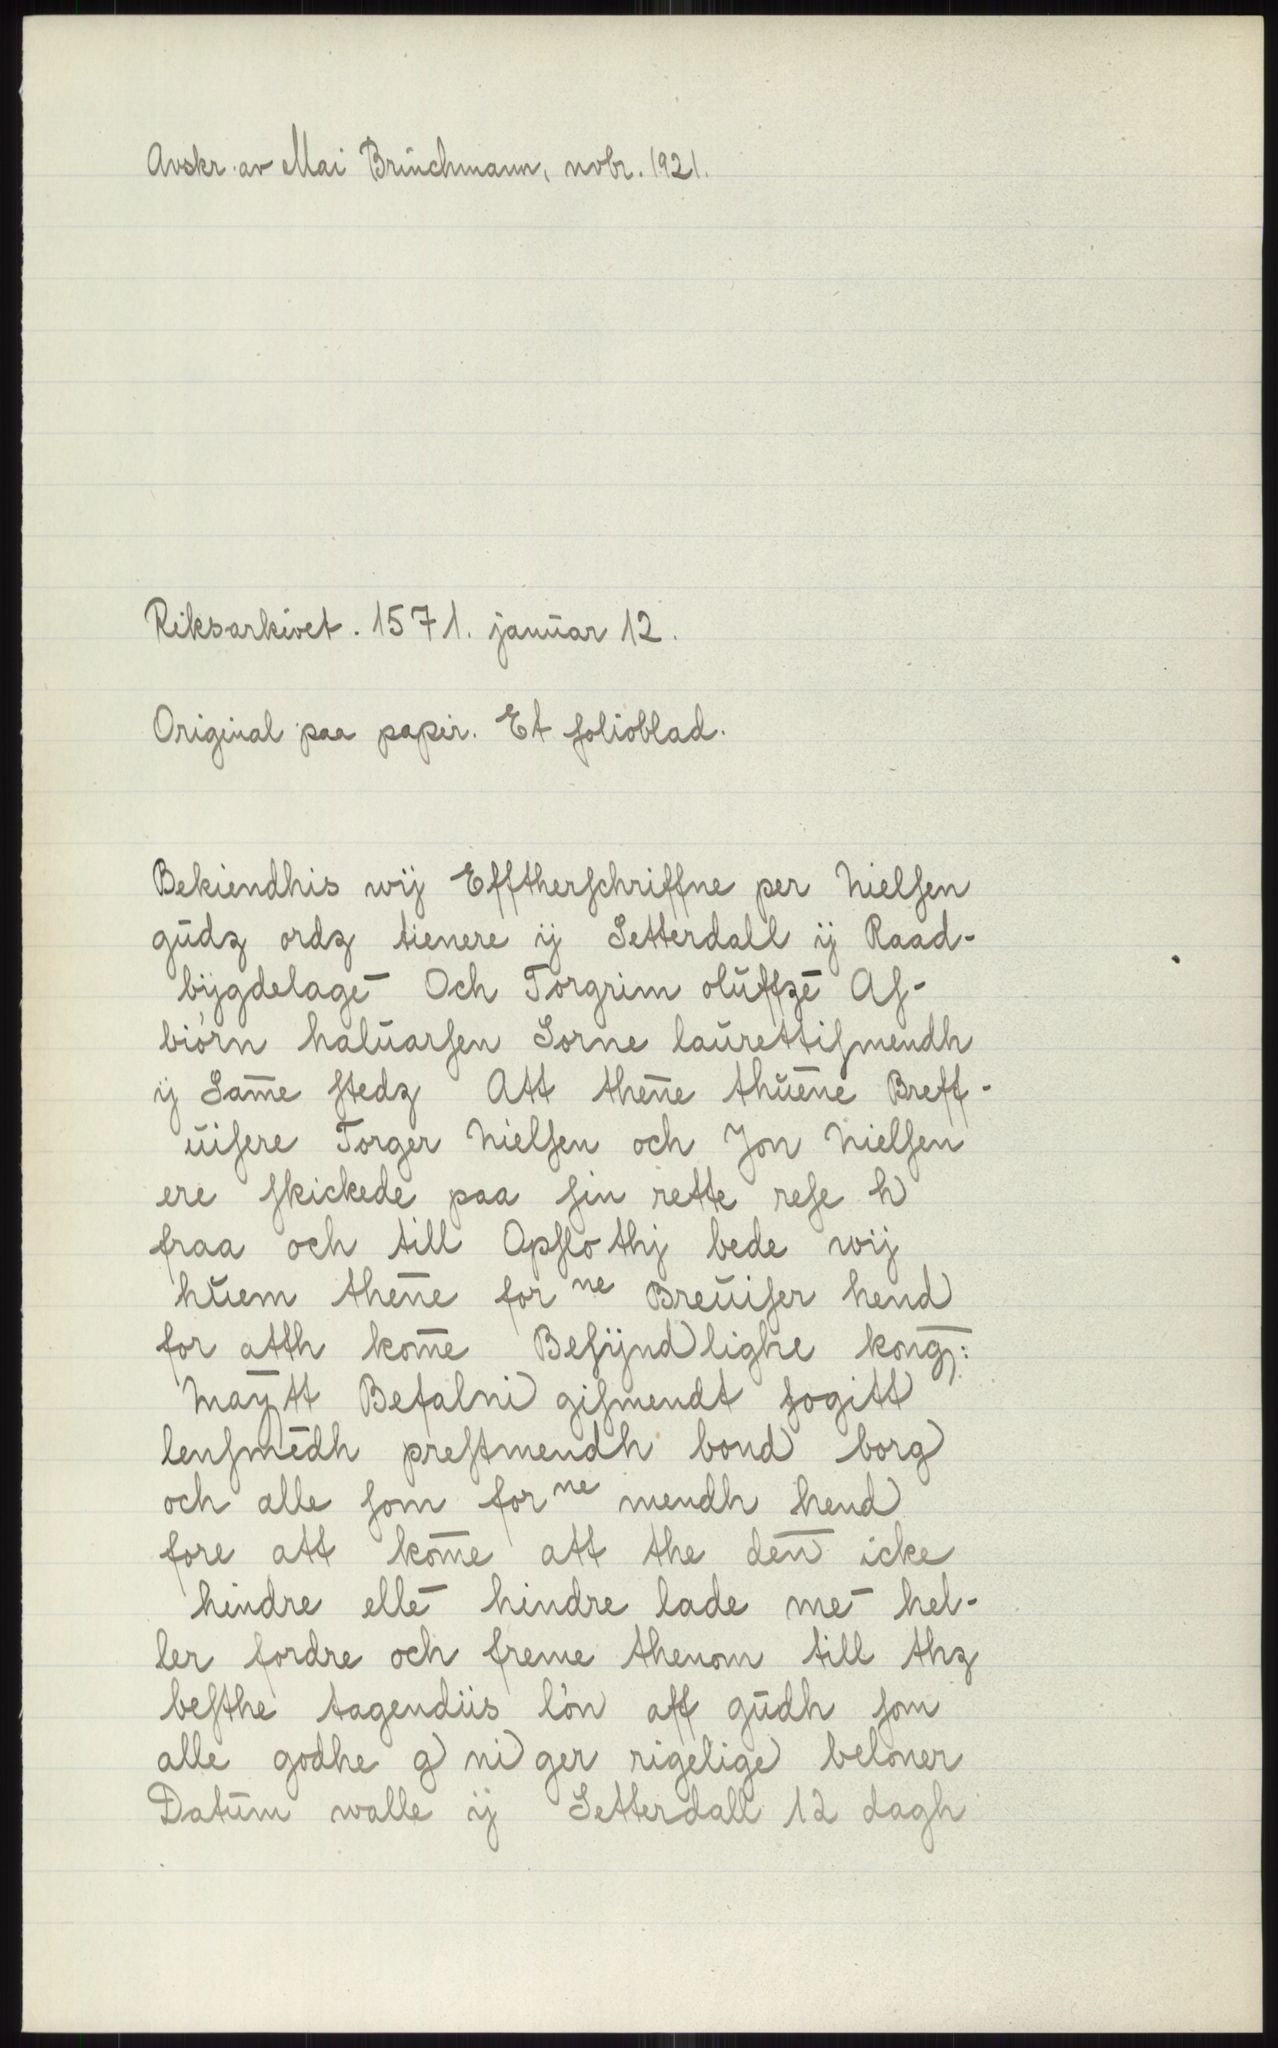 Avskr. av Mai Brŭchmann, nvbr. 1921.
Riksarkivet. 1571. janŭar 12.
Original paa papir. Et folioblad.
Bekiendhis wÿ Efftherſchriffne per Nielſen
gŭdz ordz tienere ÿ Setterdall ÿ Raad-
bÿgdelagē Och Torgrim olŭffzē Aſ-
biórn halŭarſen Sorne laŭrettiſmendh
ÿ Sam̄e ſtedz Att then̄e thŭen̄e Breff-
ŭiſere Torger Nielſen och Jon Nielſen
ere ſkickede paa ſin rette reſe h
fraa och till Opſlo thj bede wÿ
hŭem then̄e for ⁿᵉ Breŭiſer hend
for atth kom̄e Beſÿndlighe kong̅:
Maÿtt Befalni giſmendt fogitt
lenſmēdh preſtmendh bond borg
och alle ſom for ⁿᵉ mendh hend
fore att kom̄e att the den̄ icke
hindre ellē hindre lade mē hel-
ler fordre och freme thenom till thz
beſthe tagendiis lón aff gŭdh ſom
alle godhe g ni ger rigelige beloner
Datŭm walle ÿ Setterdall 12 dagh